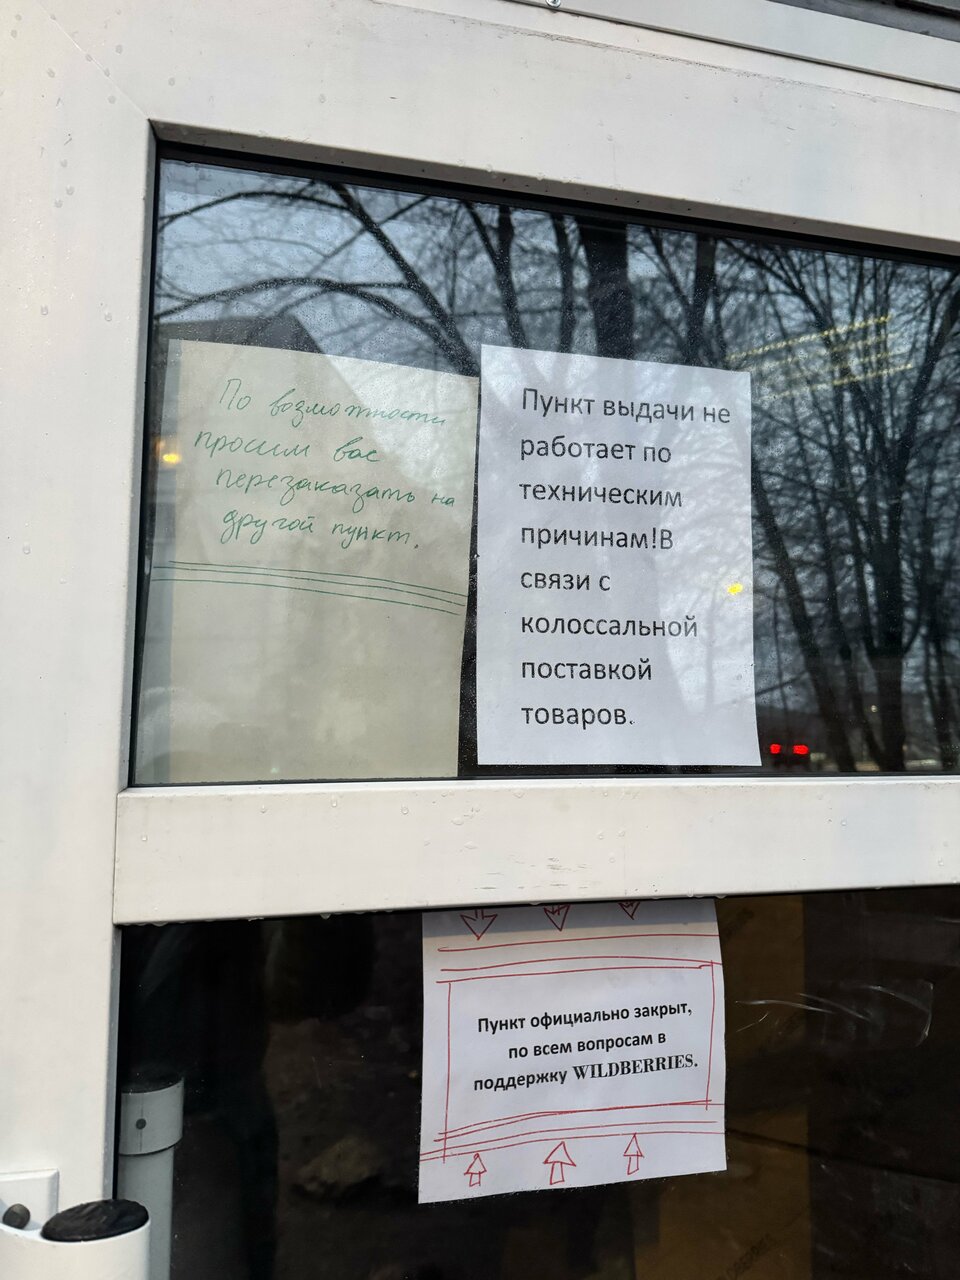 По возможности
просим вас
перезаказать на
другой пункт.
Пункт выдачи не
работает по
техническим
причинам!В
связи с
колоссальной
поставкой
товаров.
Пункт официально закрыт,
по всем вопросам в
поддержку WILDBERRIES.